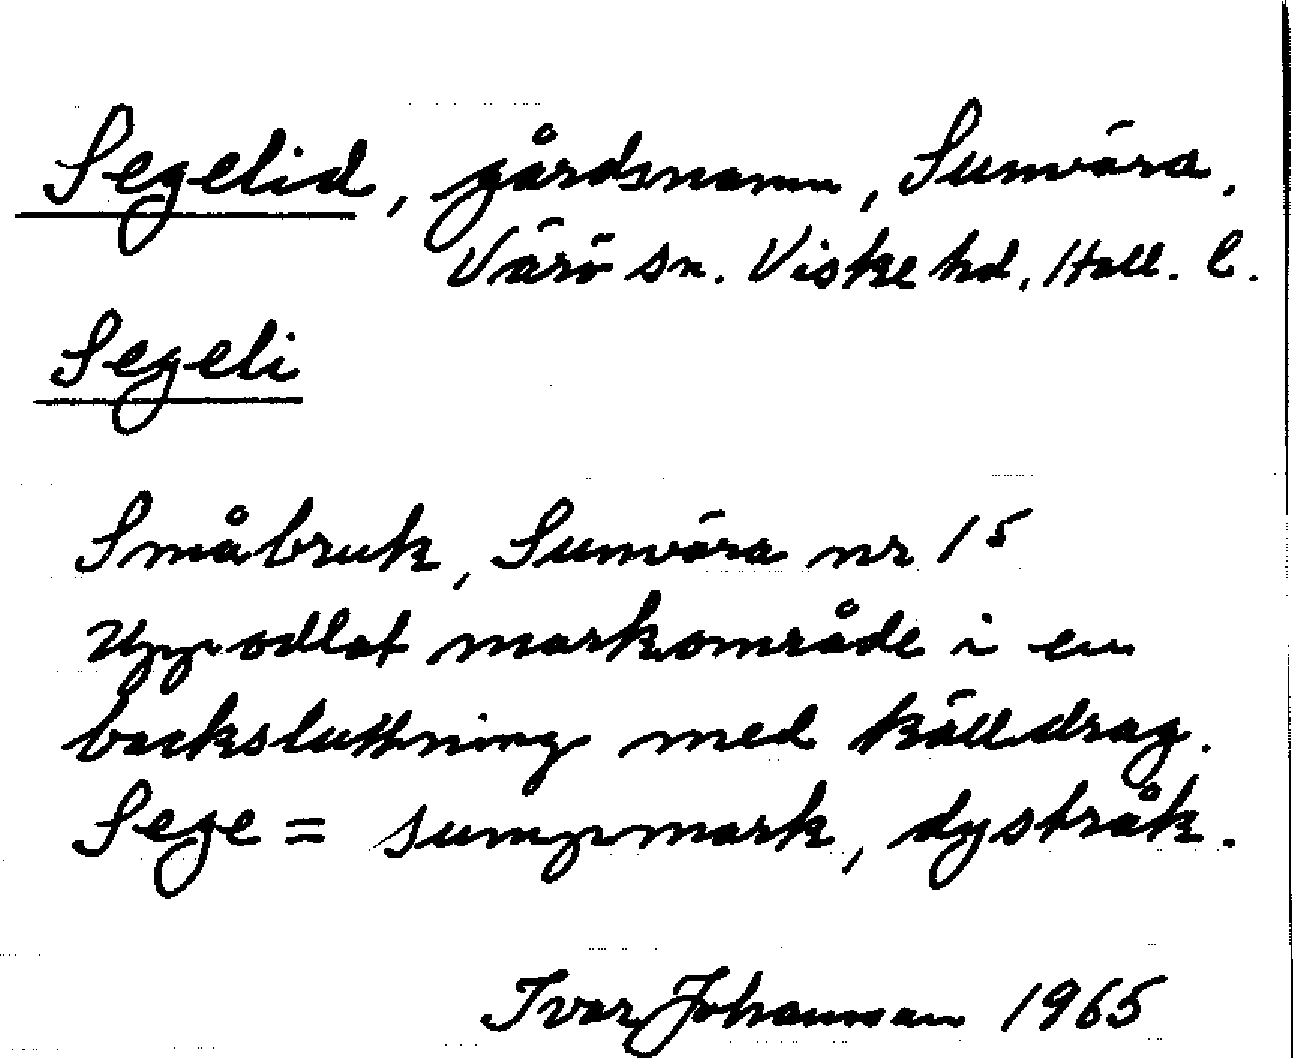 Segelid, gårdsnamn, Sunvära.
Värö sn. Viske hd, Hall. l.
Segeli
Småbruk, Sunvära nr 15
Uppodlat markområde i en
backsluttning med källdrag.
Sege = sumpmark, dystråk.
Ivar Johansson 1965